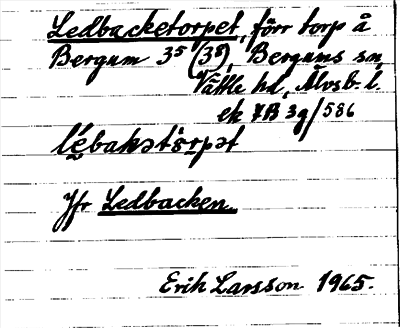 Ledbacketorpet, förr torp å
Bergum 3⁵ (3⁸), Bergums sn,
Vättle hd, Älvsb. l.
ek 7B 3g/586
lébakətò̤rpət
Jfr Ledbacken.
Erik Larsson 1965.